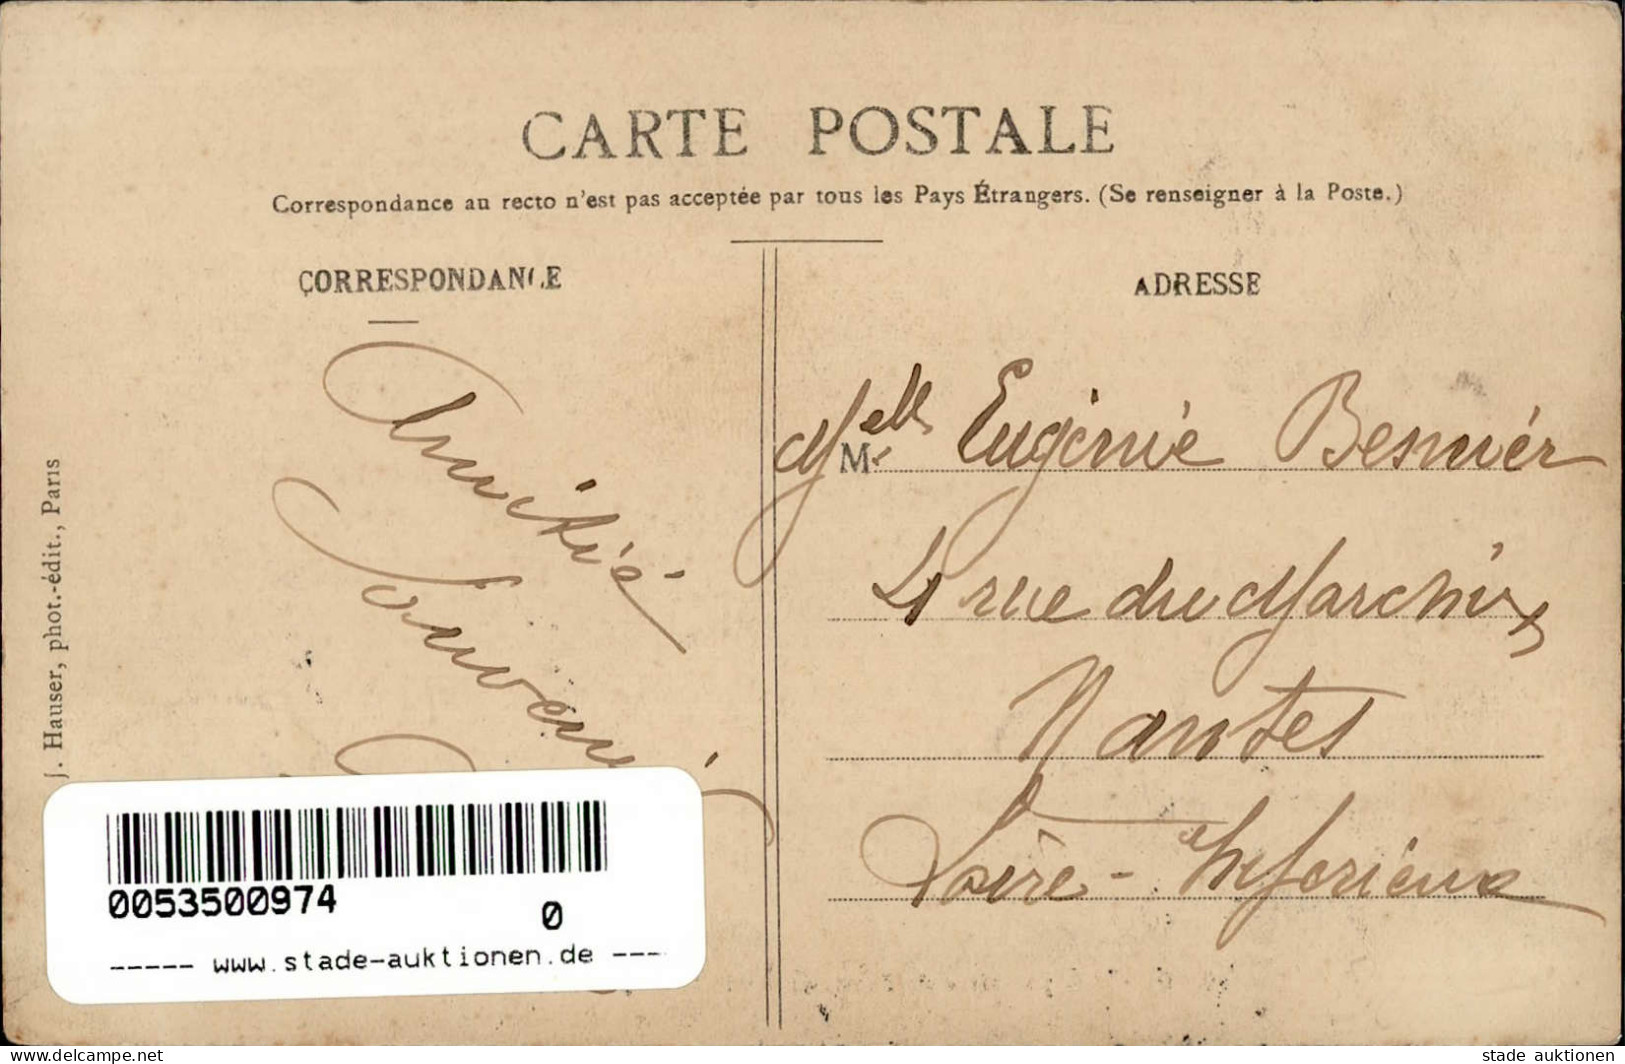 CARTE POSTALE
Correspondance au recto n'est pas acceptée par tous les Pays Étrangers. (Se renseigner à la Poste.)
CORRESPONDANCE
ADRESSE
Amitié
Souvenir
Melle Eugénie
M
4 rue du Marchix
Nantes
Loire-Inferieure
J. Hauser, phot.-édit., Paris
0053500974
0
----- www.stade-auktionen.de ---
www.delcampe.net
stade auktionen